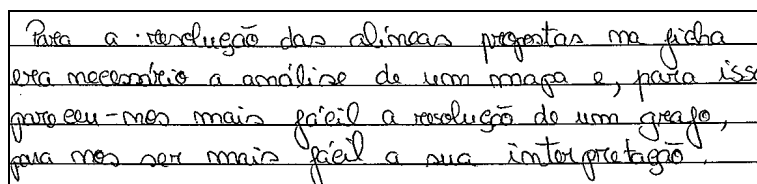 Para a resolução das alíneas propostas na ficha
era necessário a análise de um mapa e, para isso
pareceu-nos mais fácil a resolução de um grafo,
para nos ser mais fácil a sua interpretação.